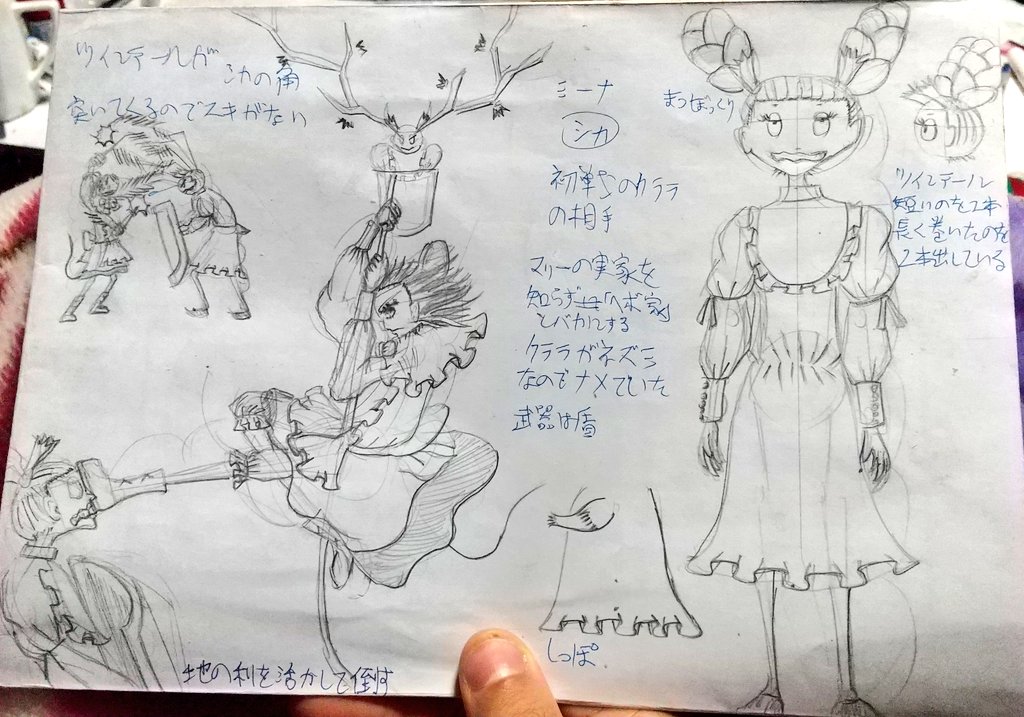 ツインテールが
シカの角
突いてくるのでスキがない
ミーナ
シカ
初戦でのクララ
の相手
マリーの実家を
知らず「ヘボ家」
とバカにする
クララがネズミ
なのでナメていた
武器は盾
まつぼっくり
ツインテール
短いのを2本
長く巻いたのを
2本出している
しっぽ
地の利を活かして倒す